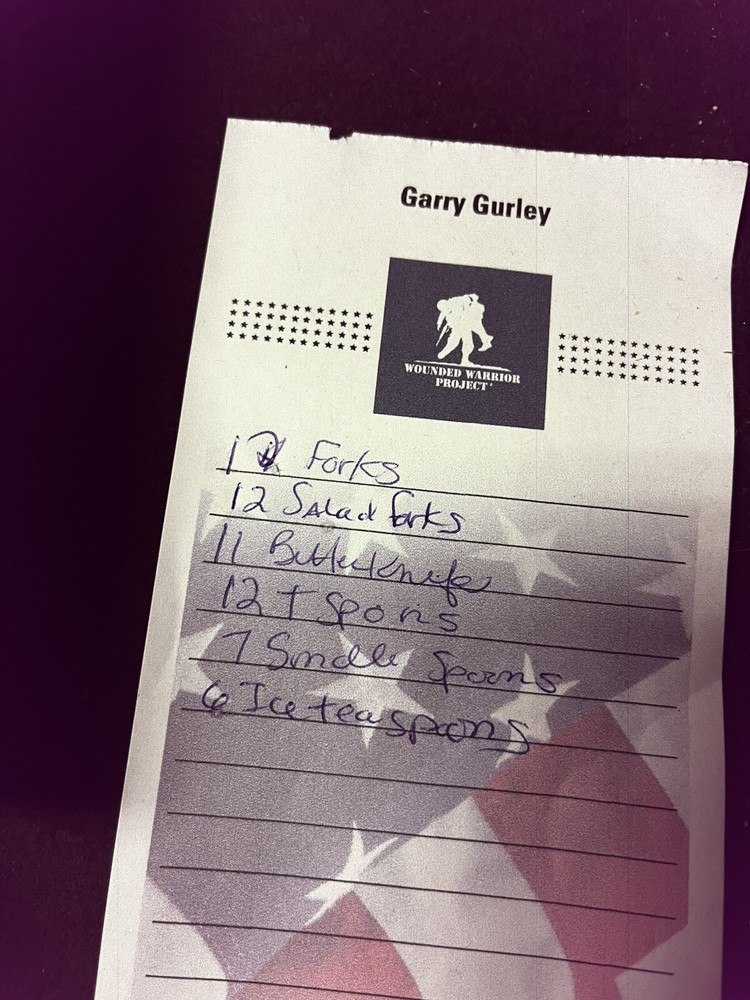 Garry Gurley
WOUNDED WARRIOR
PROJECT
12 Forks
12 Salad forks
11 Butterknife
12 T Spons
7 Smalle Spoons
6 Ice tea spons